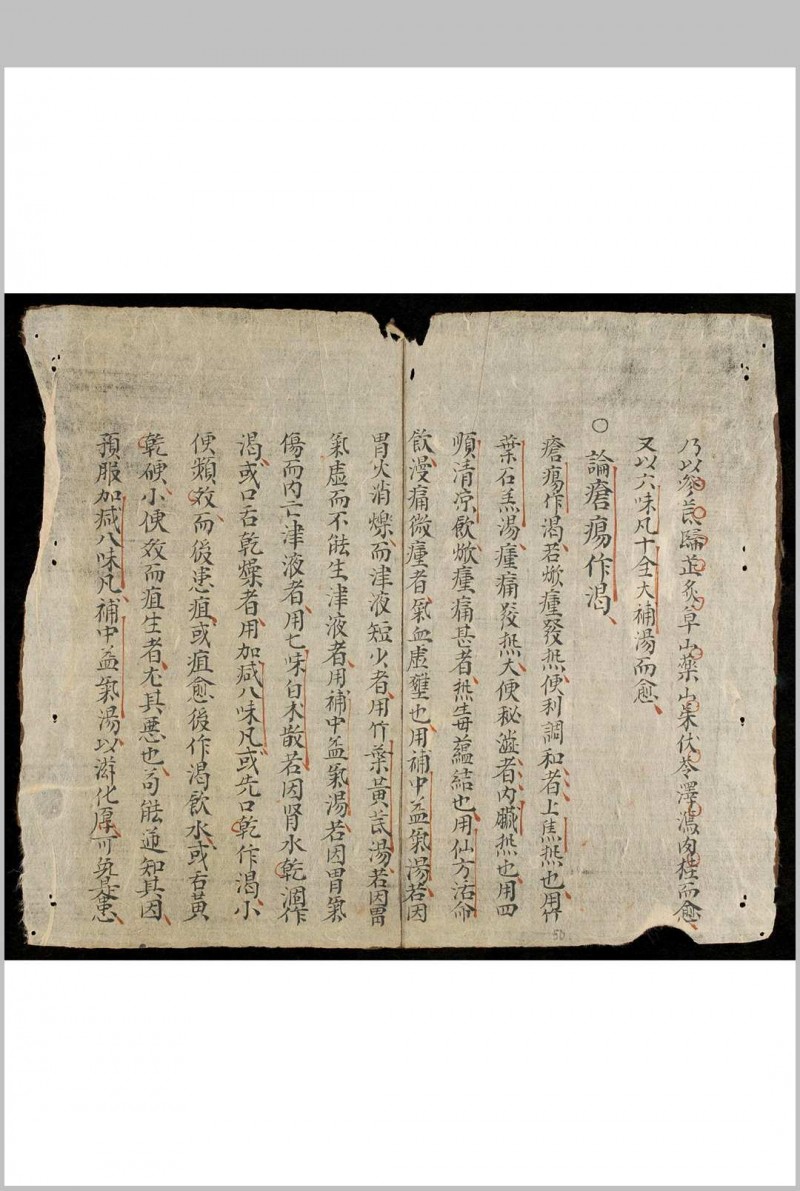 乃以參茋歸茋炙草山藥山朱伏苓澤瀉肉桂而愈
又以六味凡十全大補湯而愈
○論瘡瘍作渴
瘡瘍作渴若焮瘇發𤍠便利調和者上焦𤍠也用竹
葉石羔湯瘇痛發𤍠大便秘澁者内臟𤍠也用四
順清凉飲焮瘇痛甚者𤍠毒蘊結也用仙方活命
飲漫痛微瘇者氣血虛壅也用補中益氣湯若因
胃火消爍而津液短少者用竹葉黃茋湯若因胃
氣虛而不能生津液者用補中益氣湯若因胃氣
傷而内亡津液者用七味白术散若因腎水乾涸作
渴或口舌乾燥者用加减八味凡或先口乾作渴小
便頻数而後患疽或疽愈後作渴飲水或舌黃
乾硬小便数而疽生者尤其惡也苟能逆知其因
預服加减八味凡補中益氣湯以滋化厡可免其患
50